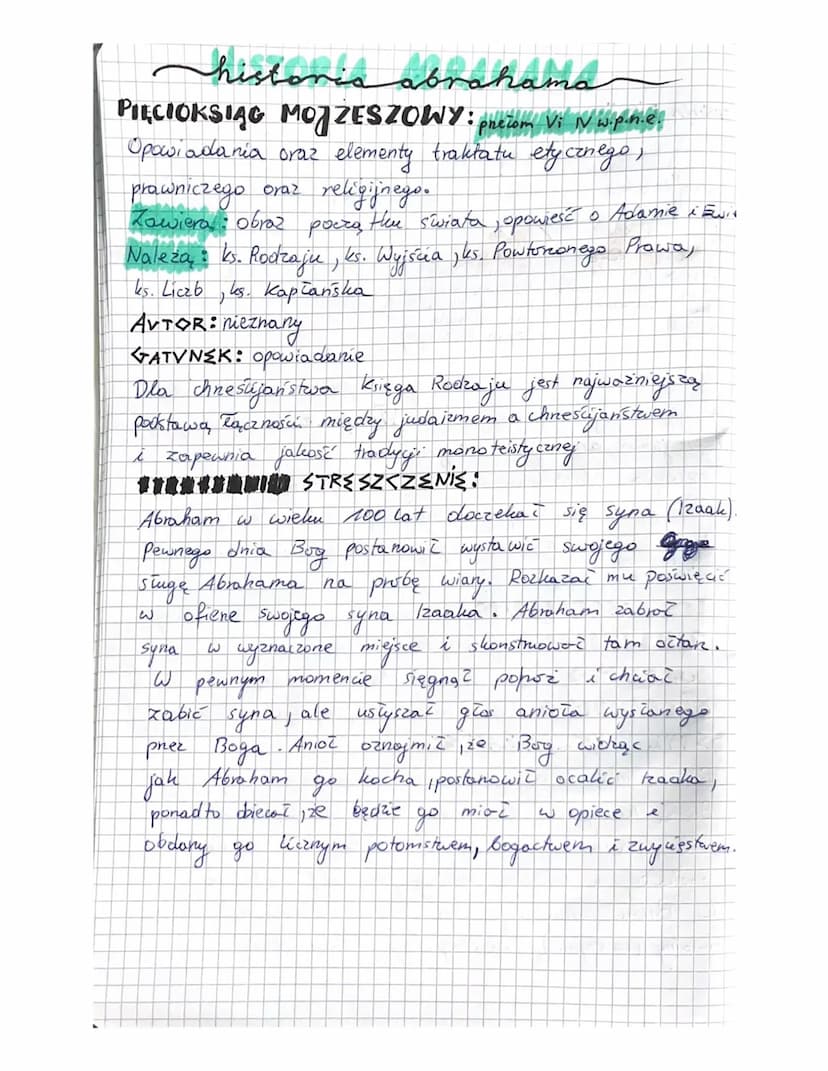 HISTORIA ABRAHAMA
historia abrahama
PIĘCIOKSIĄG MOJŻESZOWY: przełom VI IV w.p.n.e.
Opowiadania oraz elementy traktatu etycznego,
prawniczego oraz religijnego.
Zawiera: obraz początku świata, opowieść o Adamie i Ewie
Należą: ks. Rodzaju, ks. Wyjścia, ks. Powtórzonego Prawa,
ks. Liczb, ks. Kapłańska
AUTOR: nieznany
GATUNEK: opowiadanie
Dla chrześcijaństwa Księga Rodzaju jest najważniejszą
podstawą łączności między judaizmem a chrześcijaństwem
i zapewnia jakość tradycji monoteistycznej
STRESZCZENIE:
Abraham w wieku 100 lat doczekał się syna (Izaak).
Pewnego dnia Bóg postanowił wystawić swojego
sługę Abrahama na próbę wiary. Rozkazał mu poświęcić
w ofierze swojego syna Izaaka. Abraham zabrał
syna w wyznaczone miejsce i skonstruował tam ołtarz.
W pewnym momencie sięgnął po nóż i chciał
zabić syna, ale usłyszał głos anioła wysłanego
przez Boga. Anioł oznajmił, że Bóg widząc
jak Abraham go kocha, postanowił ocalić Izaaka,
ponadto obiecał, że będzie go miał w opiece i
obdarzy go licznym potomstwem, bogactwem i zwycięstwem.